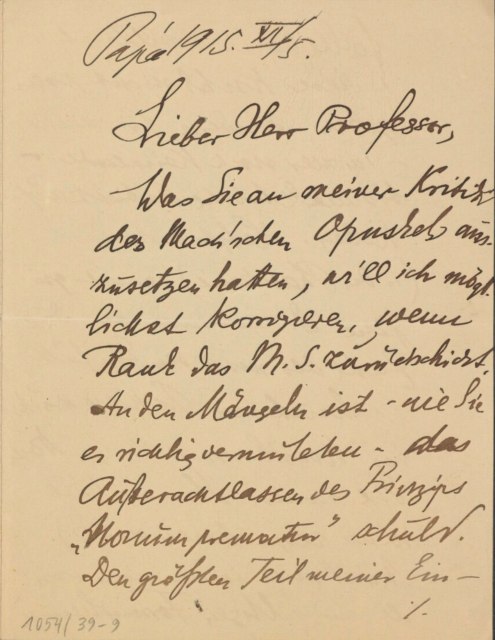 Pápa 1915. XI/5.
Lieber Herr Professor,
Was Sie an meiner Kritik
des Mach'schen Opuskels aus-
zusetzen hatten, will ich mög-
lichst korrigieren, wenn
Rank das M.S. zurückschickt.
An den Mängeln ist - wie Sie
es richtig vermuteten - das
Außerachtlassen des Prinzips
„Nonum prematur" schuld.
Den größten Teil meiner Ein-
./.
1054/39-9